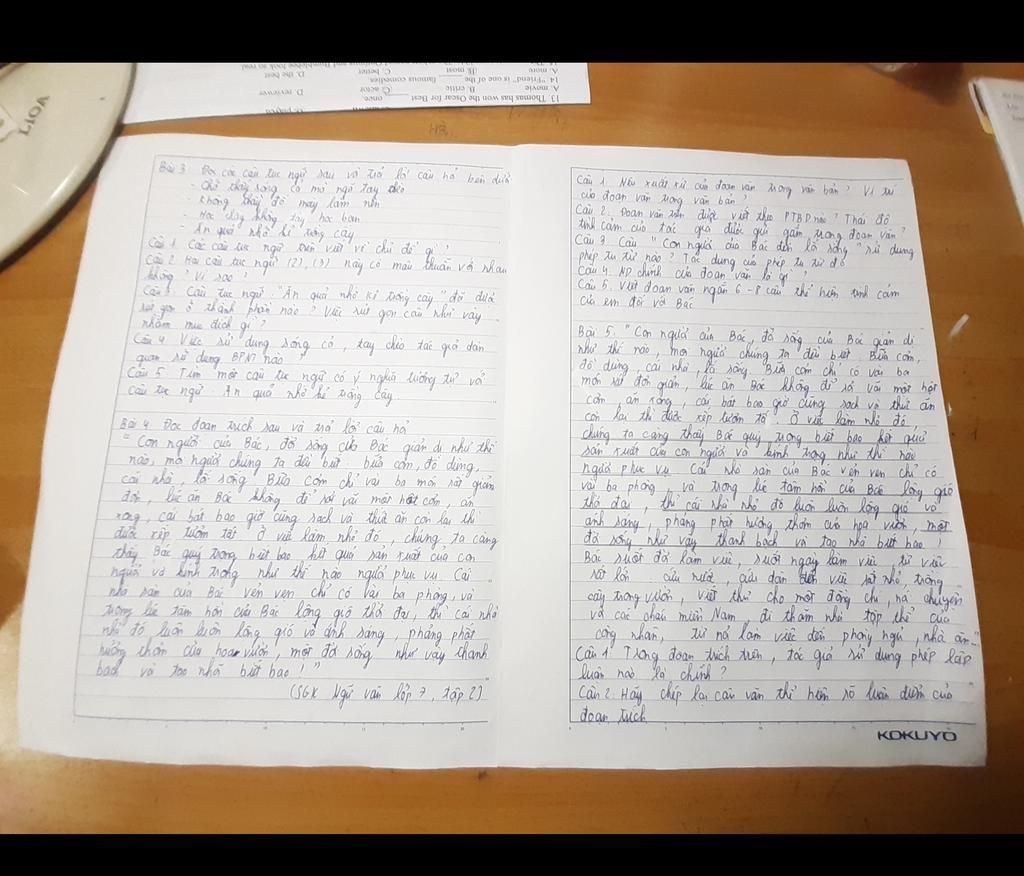 LIOA
13 Thomas has won the Oscar for Best ____ once.
A. movie B. critic C actor D. reviewer
14. "Friend" is one of the ____ famous comedies
A. more B most C. better D. the best
Bài 3 Đọc các câu tục ngữ sau và trả lời câu hỏi bên dưới
- Chớ thấy sóng cả mà ngã tay chèo
- Không thầy đố mày làm nên
- Học thầy không tày học bạn
- Ăn quả nhớ kẻ trồng cây
Câu 1. Các câu tục ngữ trên viết về chủ đề gì?
Câu 2. Hai câu tục ngữ (2), (3) này có mâu thuẫn với nhau
không? Vì sao?
Câu 3. Câu tục ngữ "Ăn quả nhớ kẻ trồng cây" đã được
rút gọn ở thành phần nào? Việc rút gọn câu như vậy
nhằm mục đích gì?
Câu 4 Việc sử dụng sóng cả, tay chèo tác giả dân
gian sử dụng BPNT nào
Câu 5 Tìm một câu tục ngữ có ý nghĩa tương tự với
câu tục ngữ Ăn quả nhớ kẻ trồng cây
Bài 4 Đọc đoạn trích sau và trả lời câu hỏi
"Con người của Bác, đời sống của Bác giản dị như thế
nào, mọi người chúng ta đều biết bữa cơm, đồ dùng,
cái nhà, lối sống Bữa cơm chỉ vài ba món rất giản
đơn, lúc ăn Bác không để rơi vãi một hột cơm, ăn
xong, cái bát bao giờ cũng sạch và thức ăn còn lại thì
được xếp tươm tất Ở việc làm nhỏ đó, chúng ta càng
thấy Bác quý trọng biết bao kết quả sản xuất của con
người và kính trọng như thế nào người phục vụ Cái
nhà sàn của Bác vẻn vẹn chỉ có vài ba phòng, và
trong lúc tâm hồn của Bác lộng gió thời đại, thì cái nhà
nhỏ đó luôn luôn lộng gió và ánh sáng, phảng phất
hương thơm của hoa vườn, một đời sống như vậy thanh
bạch và tao nhã biết bao!"
(SGK Ngữ văn lớp 7, tập 2)
Câu 1. Nêu xuất xứ của đoạn văn trong văn bản? Vị trí
của đoạn văn trong văn bản?
Câu 2. Đoạn văn trên được viết theo PTBĐ nào? Thái độ
tình cảm của tác giả được gửi gắm trong đoạn văn?
Câu 3. Câu "Con người của Bác đến lối sống" sử dụng
phép tu từ nào? Tác dụng của phép tu từ đó
Câu 4. ND chính của đoạn văn là gì?
Câu 5. Viết đoạn văn ngắn 6-8 câu thể hiện tình cảm
của em đối với Bác
Bài 5. "Con người của Bác, đời sống của Bác giản dị
như thế nào, mọi người chúng ta đều biết Bữa cơm,
đồ dùng, cái nhà, lối sống. Bữa cơm chỉ có vài ba
món rất đơn giản, lúc ăn Bác không để rơi vãi một hột
cơm, ăn xong, cái bát bao giờ cũng sạch và thức ăn
còn lại thì được xếp tươm tất. Ở việc làm nhỏ đó,
chúng ta càng thấy Bác quý trọng biết bao kết quả
sản xuất của con người và kính trọng như thế nào
người phục vụ Cái nhà sàn của Bác vẻn vẹn chỉ có
vài ba phòng, và trong lúc tâm hồn của Bác lộng gió
thời đại, thì cái nhà nhỏ đó luôn luôn lộng gió và
ánh sáng, phảng phất hương thơm của hoa vườn, một
đời sống như vậy thanh bạch và tao nhã biết bao!
Bác suốt đời làm việc, suốt ngày làm việc từ việc
rất lớn cứu nước, cứu dân đến việc rất nhỏ, trồng
cây trong vườn, viết thư cho một đồng chí, nói chuyện
với các cháu miền Nam, đi thăm nhà tập thể của
công nhân, từ nơi làm việc đến phòng ngủ, nhà ăn
Câu 1. Trong đoạn trích trên, tác giả sử dụng phép lập
luận nào là chính?
Câu 2: Hãy chép lại câu văn thể hiện rõ luận điểm của
đoạn trích
KOKUYO